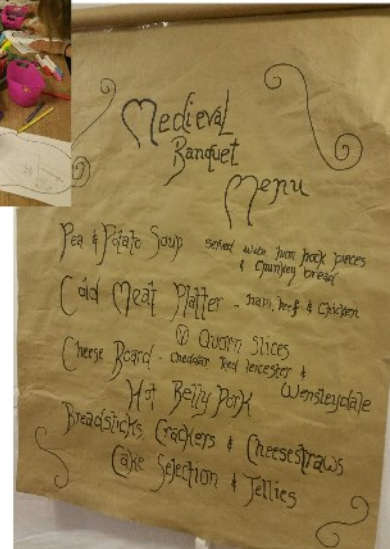 Medieval
Banquet
Menu
Pea & Potato Soup served with ham hock pieces
& Chunkey bread
Cold Meat Platter - ham, beef & Chicken
Ⓥ Quorn Slices
Cheese Board - cheddar, red leicester &
Wensleydale
Hot Belly Pork
Breadsticks, Crackers & Cheesestraws
Cake Selection & Jellies